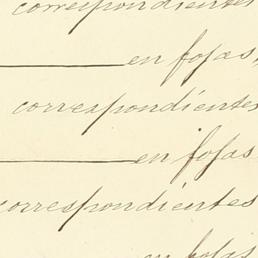 correspondientes
en fojas,
correspondientes
en fojas
correspondientes
en fojas